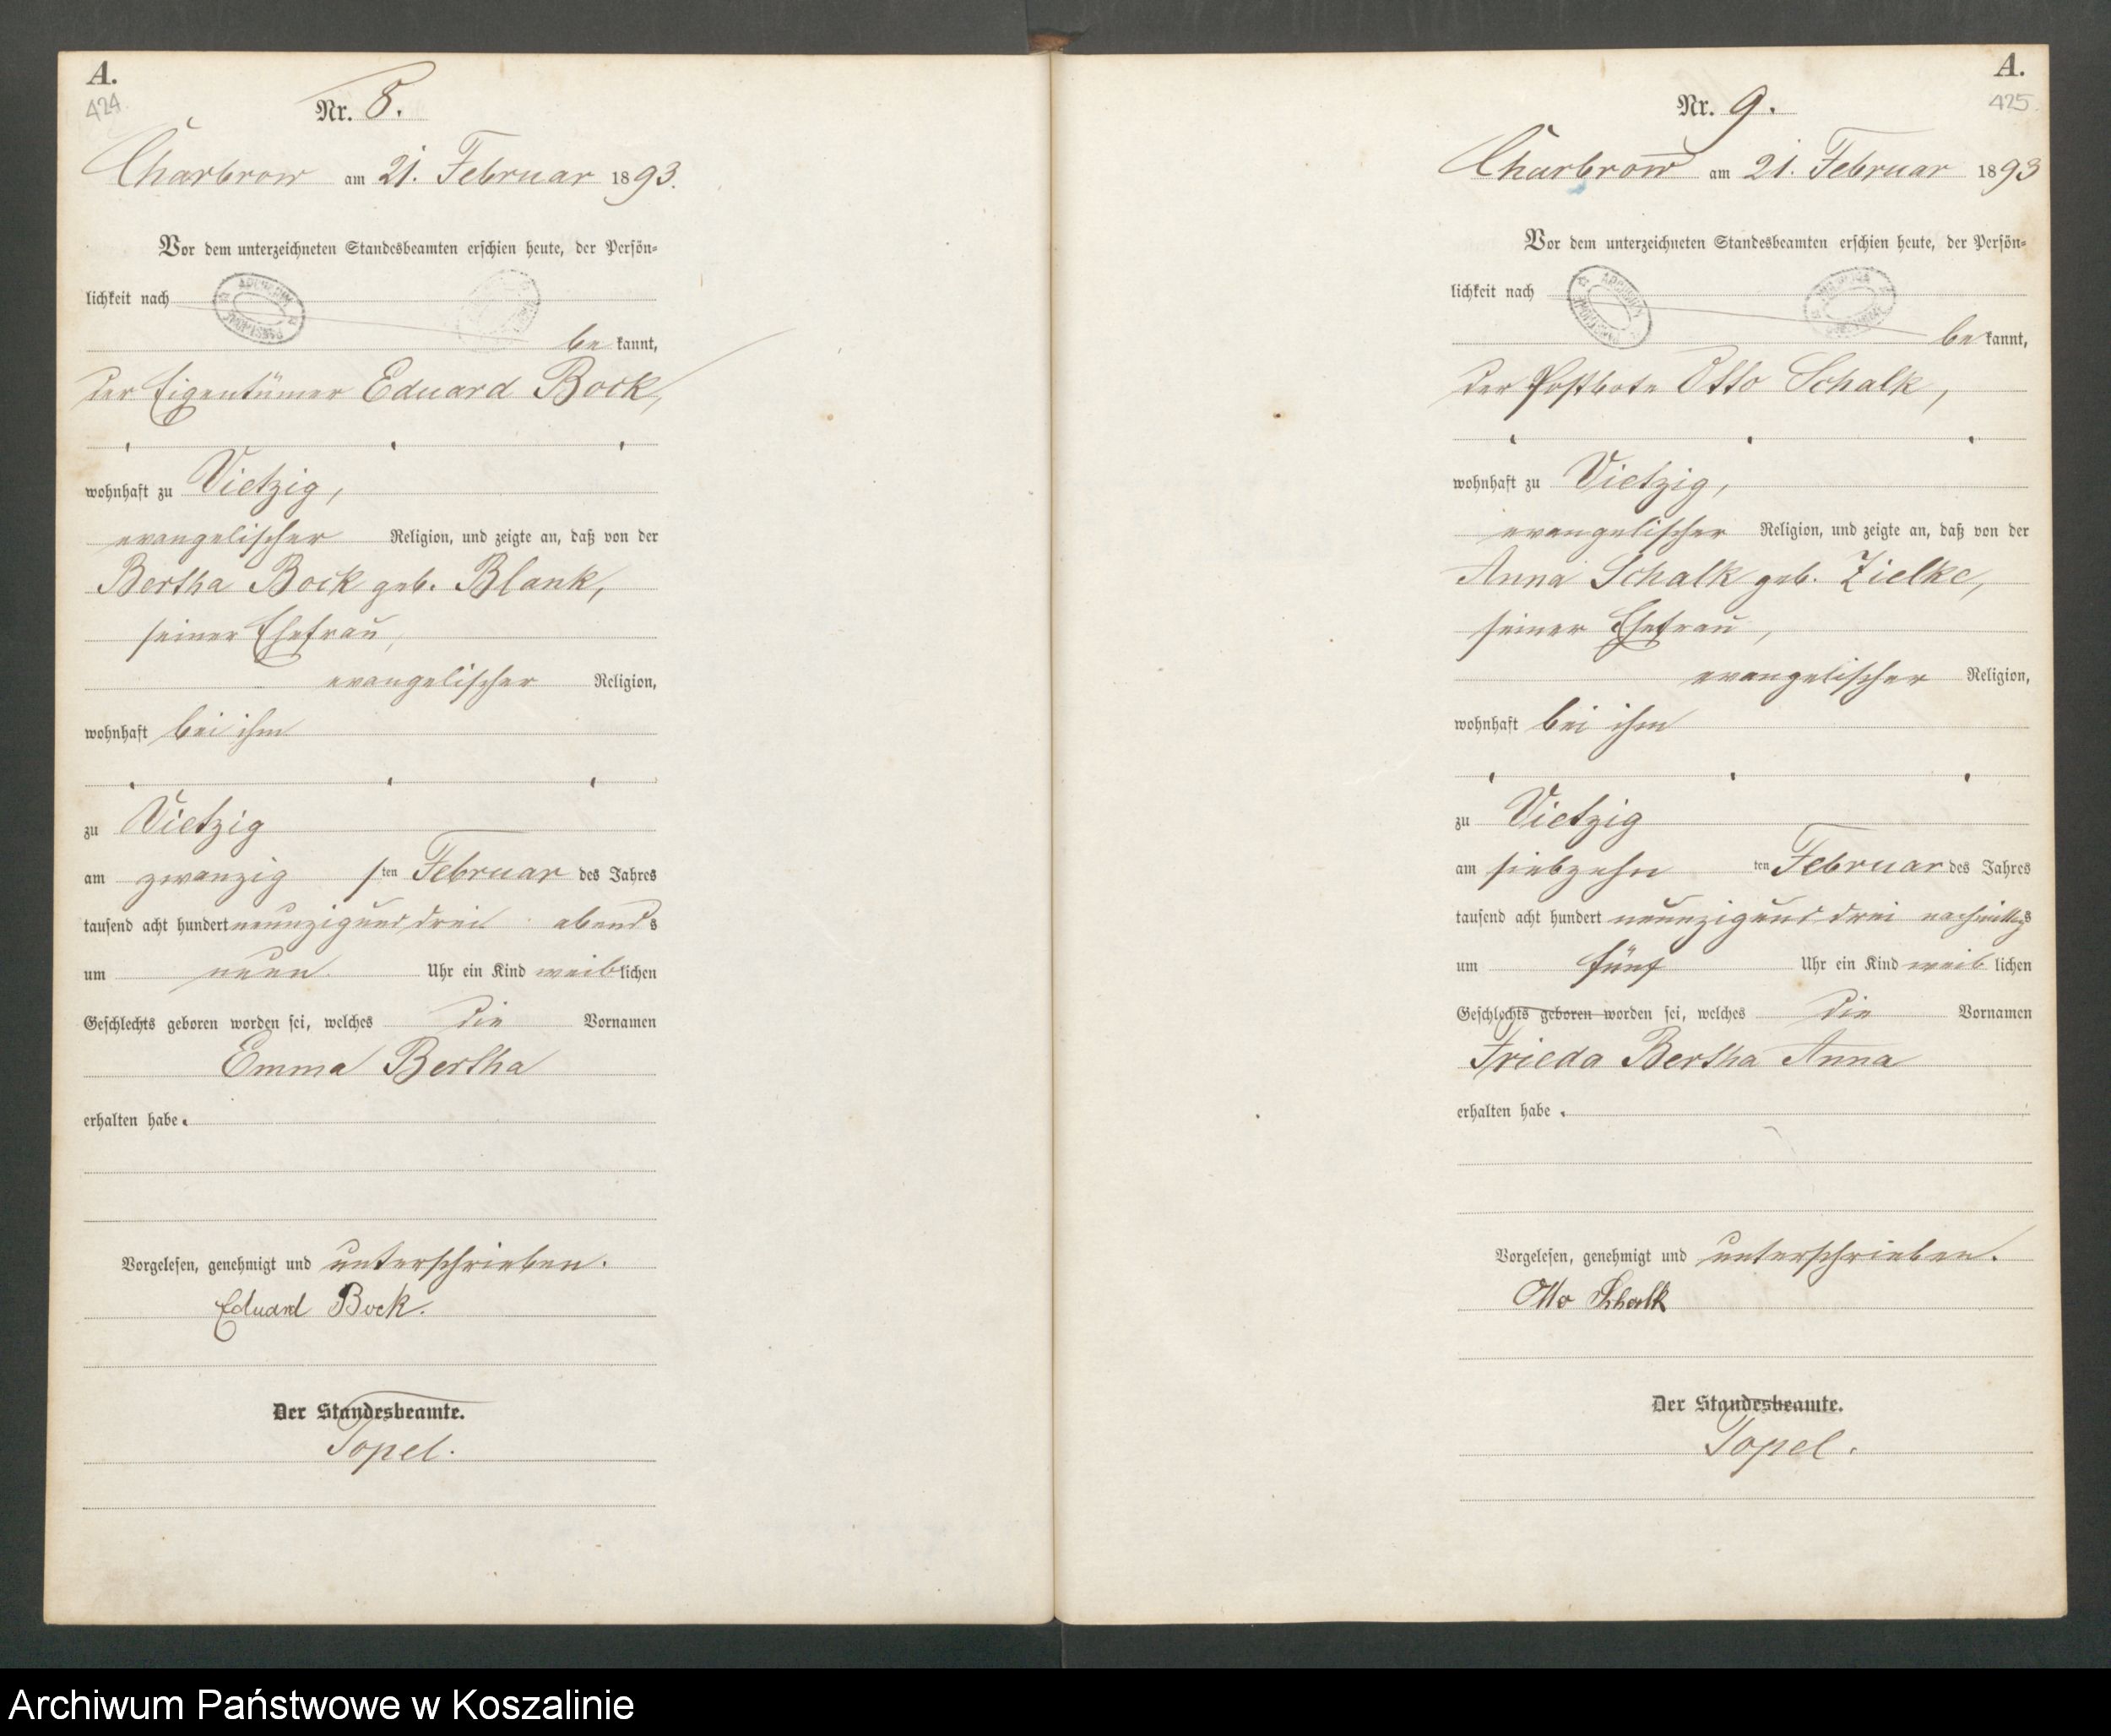 A.
424.
Nr. 8.
Charbrow am 21. Februar 1893.
Vor dem unterzeichneten Standesbeamten erschien heute, der Persön-
lichkeit nach
be kannt,
der Eigentümer Eduard Bock,
wohnhaft zu Vietzig,
evangelischer Religion, und zeigte an, daß von der
Bertha Bock geb. Blank,
seiner Ehefrau,
evangelischer Religion,
wohnhaft bei ihm
zu Vietzig
am zwanzig sten Februar des Jahres
tausend acht hundert neunzig und drei abends
um neun Uhr ein Kind weiblichen
Geschlechts geboren worden sei, welches die Vornamen
Emma Bertha
erhalten habe.
Vorgelesen, genehmigt und unterschrieben.
Eduard Bock.
Der Standesbeamte.
Topel.
A.
425.
Nr. 9.
Charbrow am 21. Februar 1893
Vor dem unterzeichneten Standesbeamten erschien heute, der Persön-
lichkeit nach
be kannt,
der Postbote Otto Schalk,
wohnhaft zu Vietzig,
evangelischer Religion, und zeigte an, daß von der
Anna Schalk geb. Zielke,
seiner Ehefrau,
evangelischer Religion,
wohnhaft bei ihm
zu Vietzig
am siebzehn ten Februar des Jahres
tausend acht hundert neunzig und drei nachmittags
um fünf Uhr ein Kind weiblichen
Geschlechts geboren worden sei, welches die Vornamen
Frieda Bertha Anna
erhalten habe.
Vorgelesen, genehmigt und unterschrieben.
Otto Schalk
Der Standesbeamte.
Topel.
Archiwum Państwowe w Koszalinie